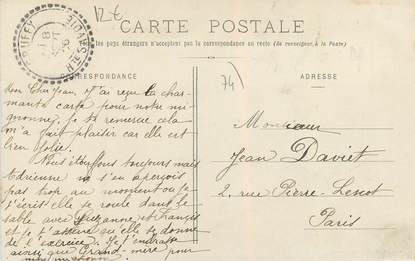 12 €
CARTE POSTALE
les pays étrangers n'acceptent pas la correspondance au recto (Se renseigner à la Poste)
RUFFY
Hte SAVOIE
CORRESPONDANCE
ADRESSE
74
Mon Cher Jean, J'ai reçu la char-
mante carte pour notre mi-
gnonne, je te remercie cela
m'a fait plaisir car elle est
bien jolie.
Nous toujours mais
Adrienne ne s'en aperçois
pas trop au moment où je
t'écris elle se roule dans le
sable avec Suzanne et François
et je t'assure qu'elle se donne
de l'exercice. Je t'embrasse
ainsi que Grand-mère pour
Monsieur
Jean Daviet
2, rue Pierre-Lescot
Paris